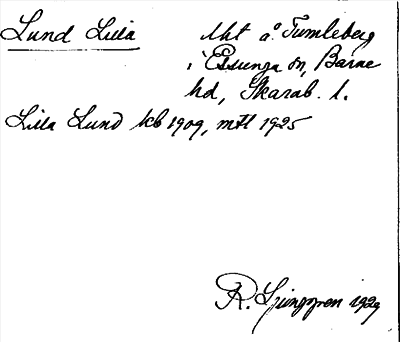 Lund Lilla lht å Tumleberg
i Essunga sn, Barne
hd, Skarab. l.
Lilla Lund kb 1909, mtl 1925
R. Ljunggren 1929